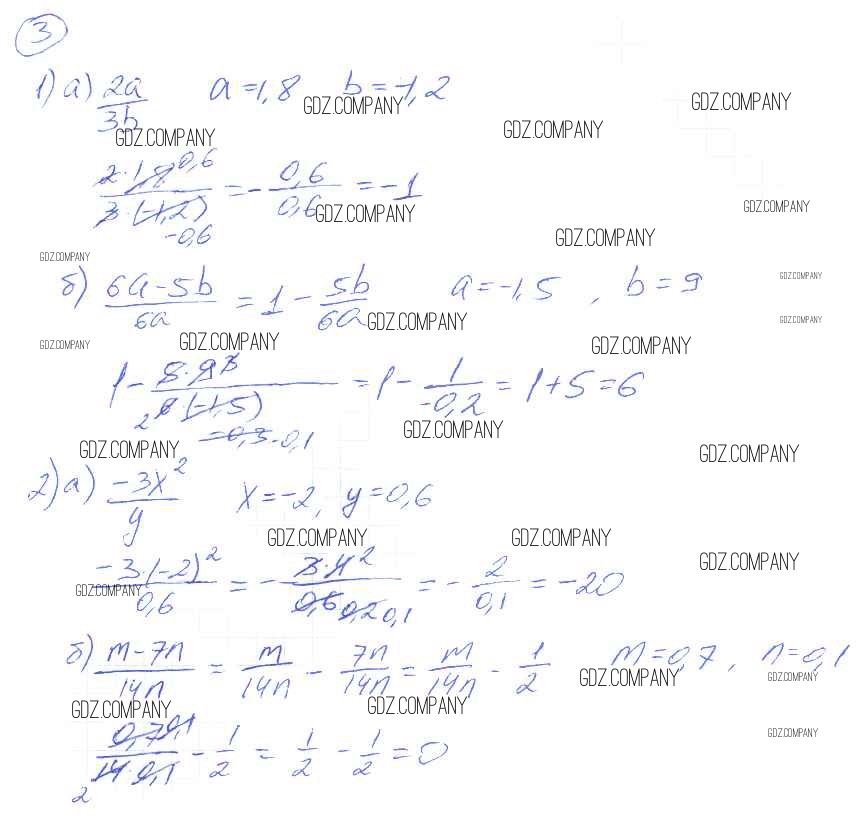 3
1) а) 2a/3b a = 1,8 b = -1,2
GDZ.COMPANY GDZ.COMPANY
GDZ.COMPANY GDZ.COMPANY
2·1,8 0,6 / 3·(-1,2) -0,6 = - 0,6/0,6 = -1
GDZ.COMPANY GDZ.COMPANY
GDZ.COMPANY
GDZ.COMPANY GDZ.COMPANY
б) 6a-5b/6a = 1 - 5b/6a a = -1,5 , b = 9
GDZ.COMPANY GDZ.COMPANY
GDZ.COMPANY GDZ.COMPANY GDZ.COMPANY
1 - 5·9 3 / 2 6(-1,5) = 1 - 1/-0,2 = 1+5 = 6
-0,3 -0,1
GDZ.COMPANY GDZ.COMPANY GDZ.COMPANY
2) а) -3x²/y x = -2, y = 0,6
GDZ.COMPANY GDZ.COMPANY GDZ.COMPANY
-3·(-2)²/0,6 = - 3·4 2 / 0,6 0,2 0,1 = - 2/0,1 = -20
GDZ.COMPANY
б) m-7n/14n = m/14n - 7n/14n = m/14n - 1/2 m = 0,7 , n = 0,1
GDZ.COMPANY GDZ.COMPANY
GDZ.COMPANY GDZ.COMPANY
0,7 0,1 / 2 14·0,1 - 1/2 = 1/2 - 1/2 = 0
GDZ.COMPANY